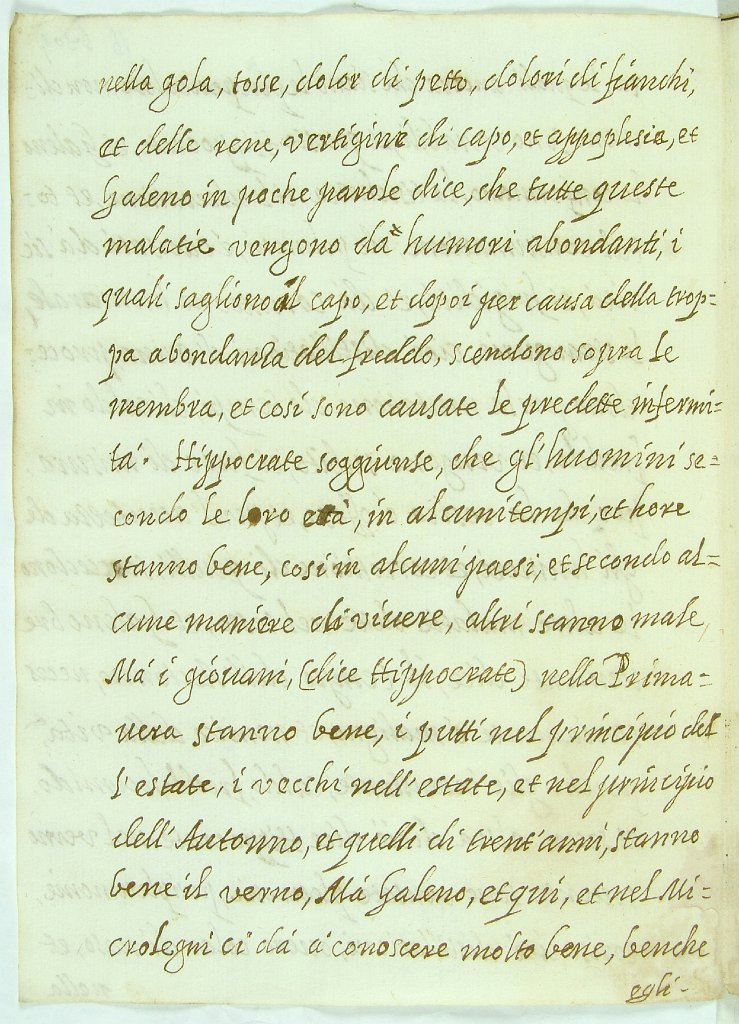 nella gola, tosse, dolor di petto, dolori di fianchi,
et delle rene, vertigine di capo, et appoplesia, et
Galeno in poche parole dice, che tutte queste
malatie vengono da humori abondanti, i
quali sagliono al capo, et dopoi per causa della trop=
pa abondanza del freddo, scendono sopra le
membra, et cosi sono causate le predette infermi=
tá. Hippocrate soggiunse, che gl'huomini se=
condo le loro etá, in alcuni tempi, et hore
stanno bene, cosi in alcuni paesi, et secondo al=
cune maniere di vivere, altri stanno male,
Má i giovani, (dice Hippocrate) nella Prima=
vera stanno bene, i putti nel principio del
l'estate, i vecchi nell'estate, et nel principio
dell'Autonno, et quelli di trent'anni, stanno
bene il verno, Má Galeno, et qui, et nel Mi=
crolegni ci dá á conoscere molto bene, benche
egli-